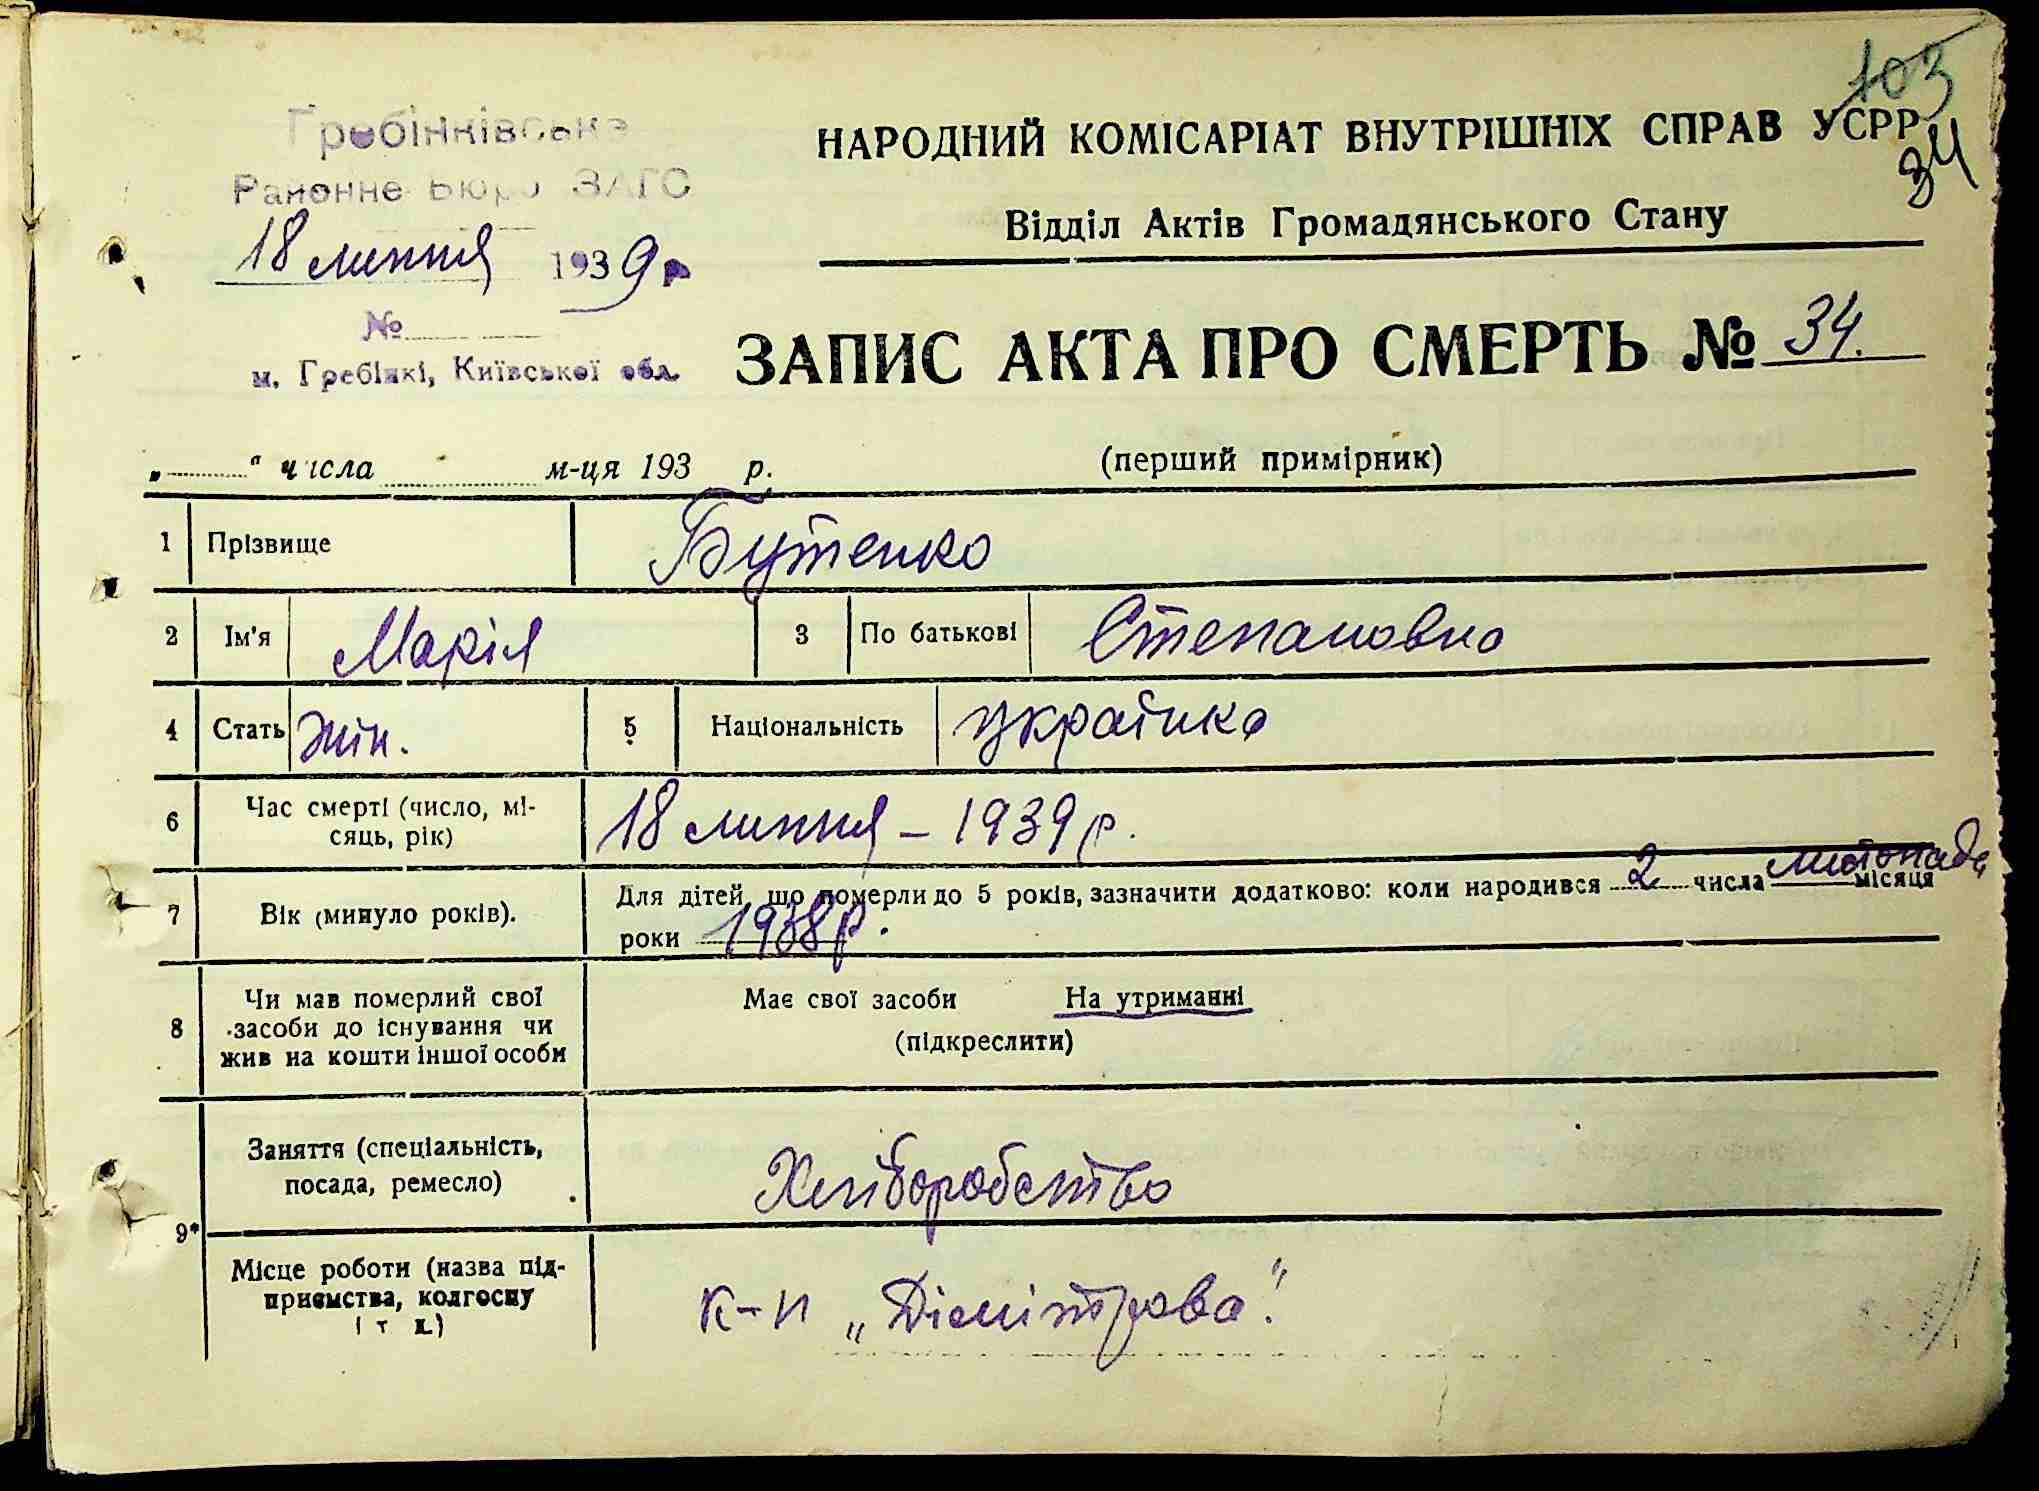 103
34
Гребінківське
Районне Бюро ЗАГС
18 липня 1939 р
№
м. Гребінкі, Київської обл.
НАРОДНИЙ КОМІСАРІАТ ВНУТРІШНІХ СПРАВ УСРР
Відділ Актів Громадянського Стану
ЗАПИС АКТА ПРО СМЕРТЬ № 34.
„ “ числа м-ця 193 р.
(перший примірник)
1 Прізвище Бутенко
2 Ім'я Марія 3 По батькові Степановна
4 Стать жін. 5 Національність українка
6 Час смерті (число, мі-
сяць, рік) 18 липня – 1939 р.
7 Вік (минуло років). Для дітей, що померли до 5 років, зазначити додатково: коли народився 2 числа листопада місяця
роки 1938 р.
8 Чи мав померлий свої
засоби до існування чи
жив на кошти іншої особи
Має свої засоби На утриманні
(підкреслити)
9* Заняття (спеціальність,
посада, ремесло) Хліборобство
Місце роботи (назва під-
приємства, колгоспу
і т д.) к-п „Дімітрова".